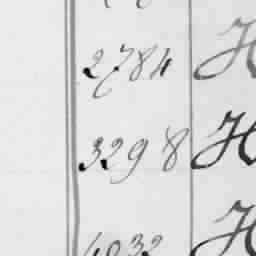 2784 H
3298 H
4032 H